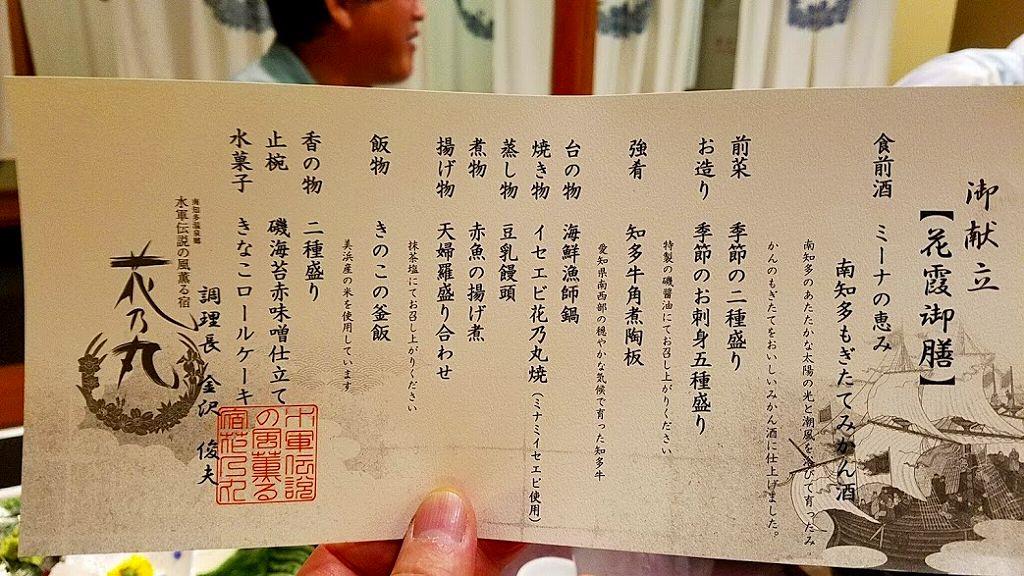 御献立
【花霞御膳】
食前酒 ミーナの恵み
南知多もぎたてみかん酒
南知多のあたたかな太陽の光と潮風を浴びて育ったみ
かんのもぎたてをおいしいみかん酒に仕上げました。
前菜 季節の二種盛り
お造り 季節のお刺身五種盛り
特製の磯醤油にてお召し上がりください
強肴 知多牛角煮陶板
愛知県南西部の穏やかな気候で育った知多牛
台の物 海鮮漁師鍋
焼き物 イセエビ花乃丸焼（ミナミイセエビ使用）
蒸し物 豆乳饅頭
煮物 赤魚の揚げ煮
揚げ物 天婦羅盛り合わせ
抹茶塩にてお召し上がりください
飯物 きのこの釜飯
美浜産の米を使用しています
香の物 二種盛り
止椀 磯海苔赤味噌仕立て
水菓子 きなこロールケーキ
調理長 金沢 俊夫
南知多温泉郷
水軍伝説の風薫る宿
花乃丸
水軍伝説
の風薫る
宿花乃丸